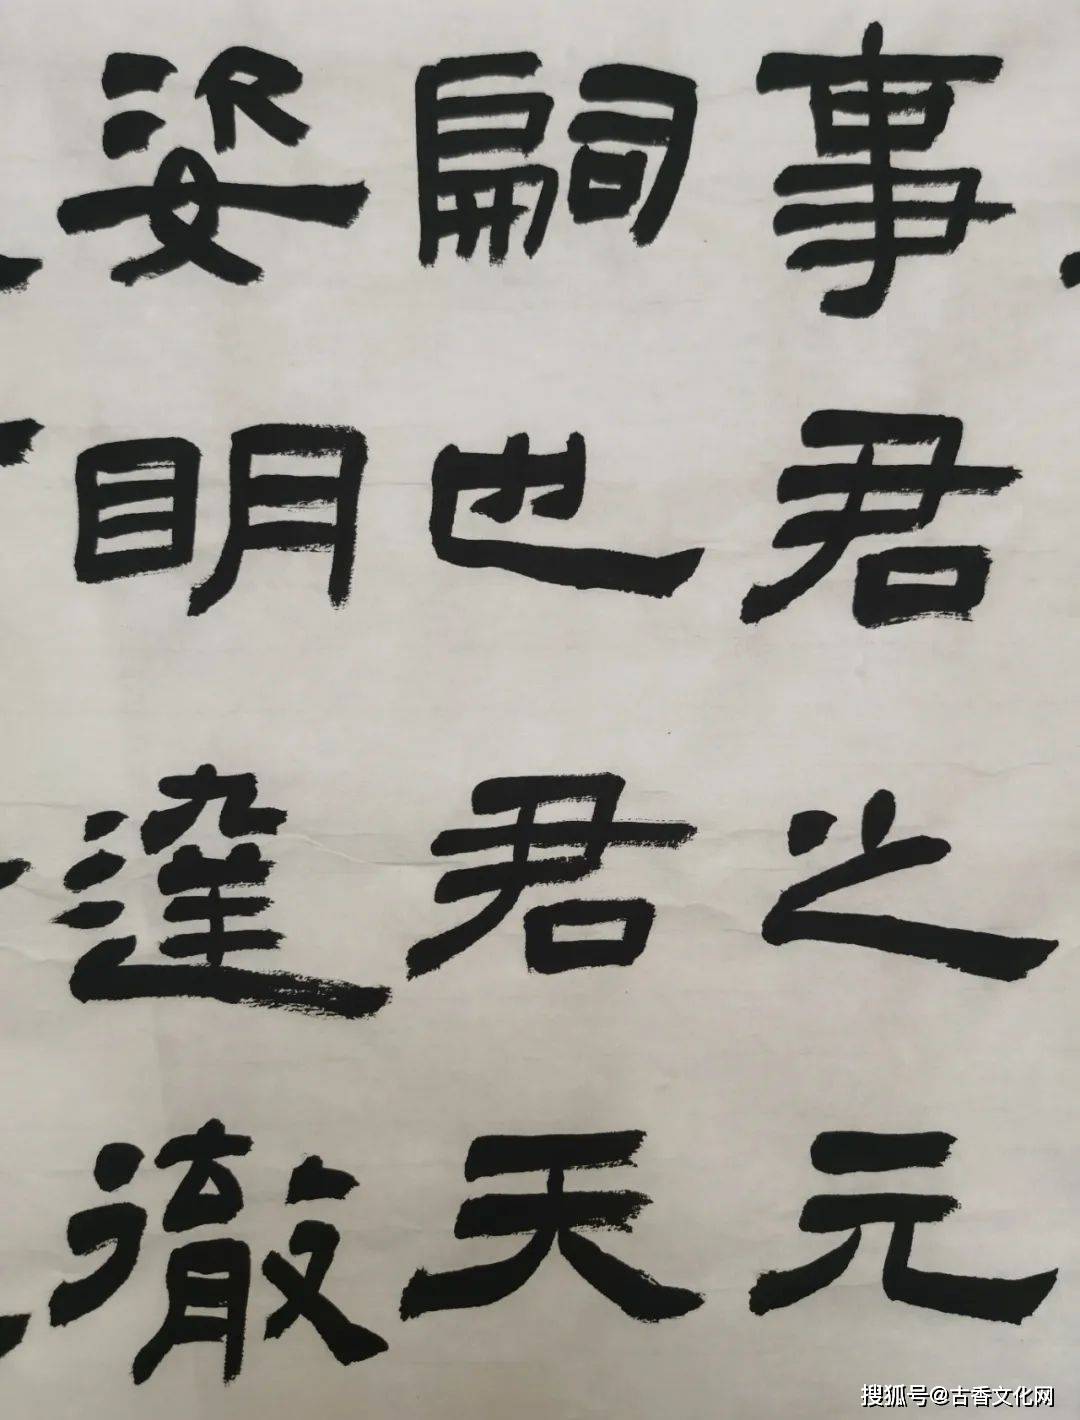 事君之元
嗣也君天
姿明達徹
搜狐号@古香文化网